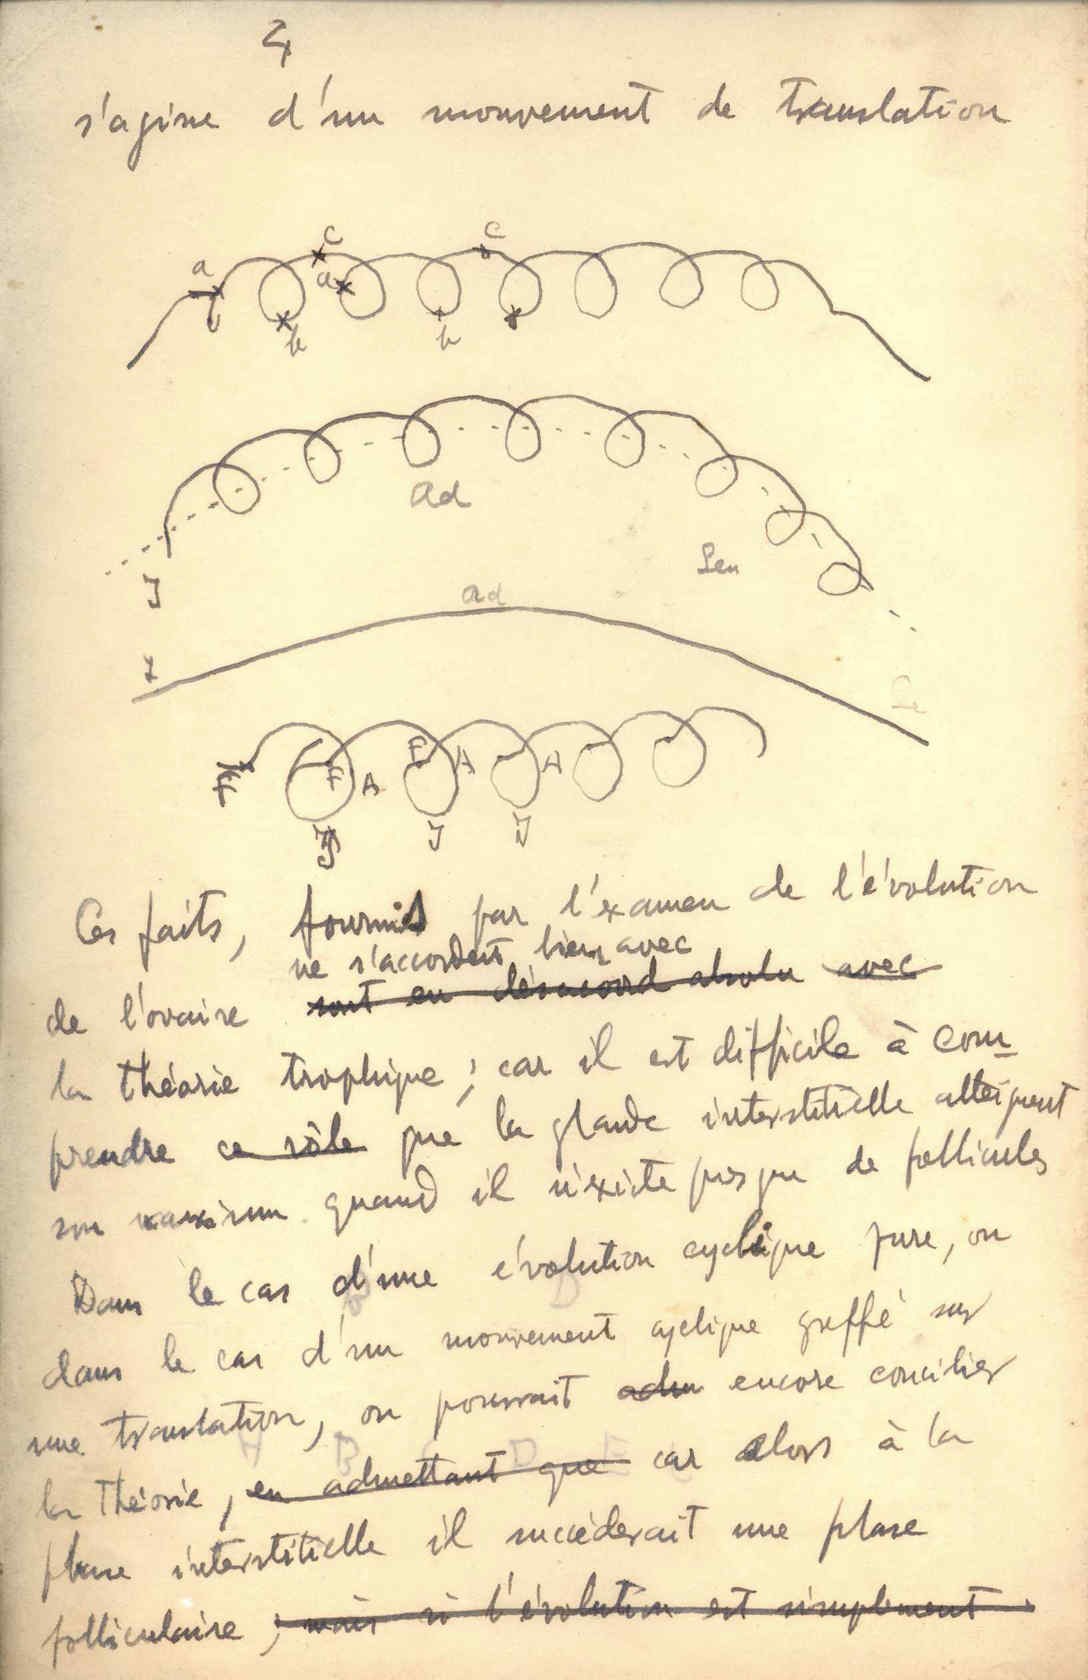 4
s'agisse d'un mouvement de translation
a c a c
b b
Ad
J Sen
Ad
F F A F A A
J J J
Ces faits, fournis par l'examen de l'évolution
ne s'accordent bien avec
de l'ovaire sont en désaccord absolu avec
la théorie trophique ; car il est difficile à com-
prendre ce rôle que la glande interstitielle atteignent
son maximum quand il n'existe presque de follicules
Dans le cas d'une évolution cyclique pure, ou
dans le cas d'un mouvement cyclique greffé sur
une translation, on pourrait adm encore concilier
la théorie, en admettant que car alors à la
phase interstitielle il succéderait une phase
folliculaire ; mais si l'évolution est simplement